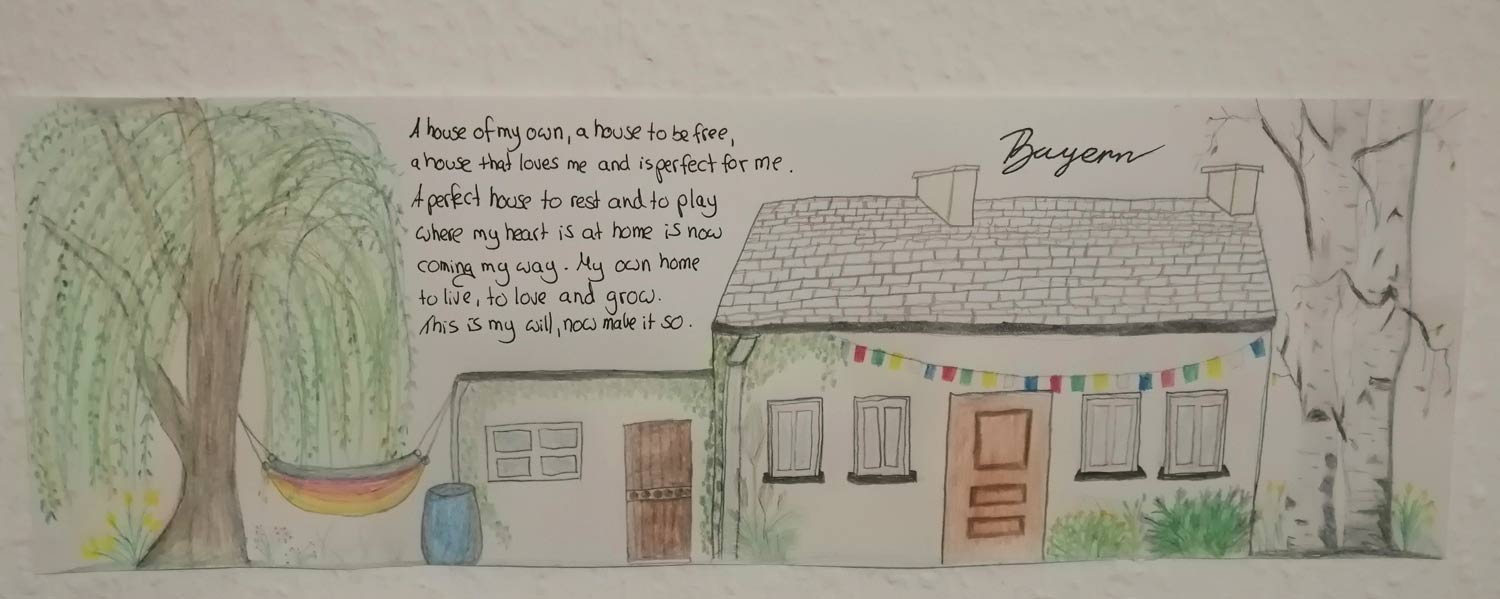 A house of my own, a house to be free,
a house that loves me and is perfect for me.
A perfect house to rest and to play
where my heart is at home is now
coming my way. My own home
to live, to love and grow.
This is my will, now make it so.
Bayern